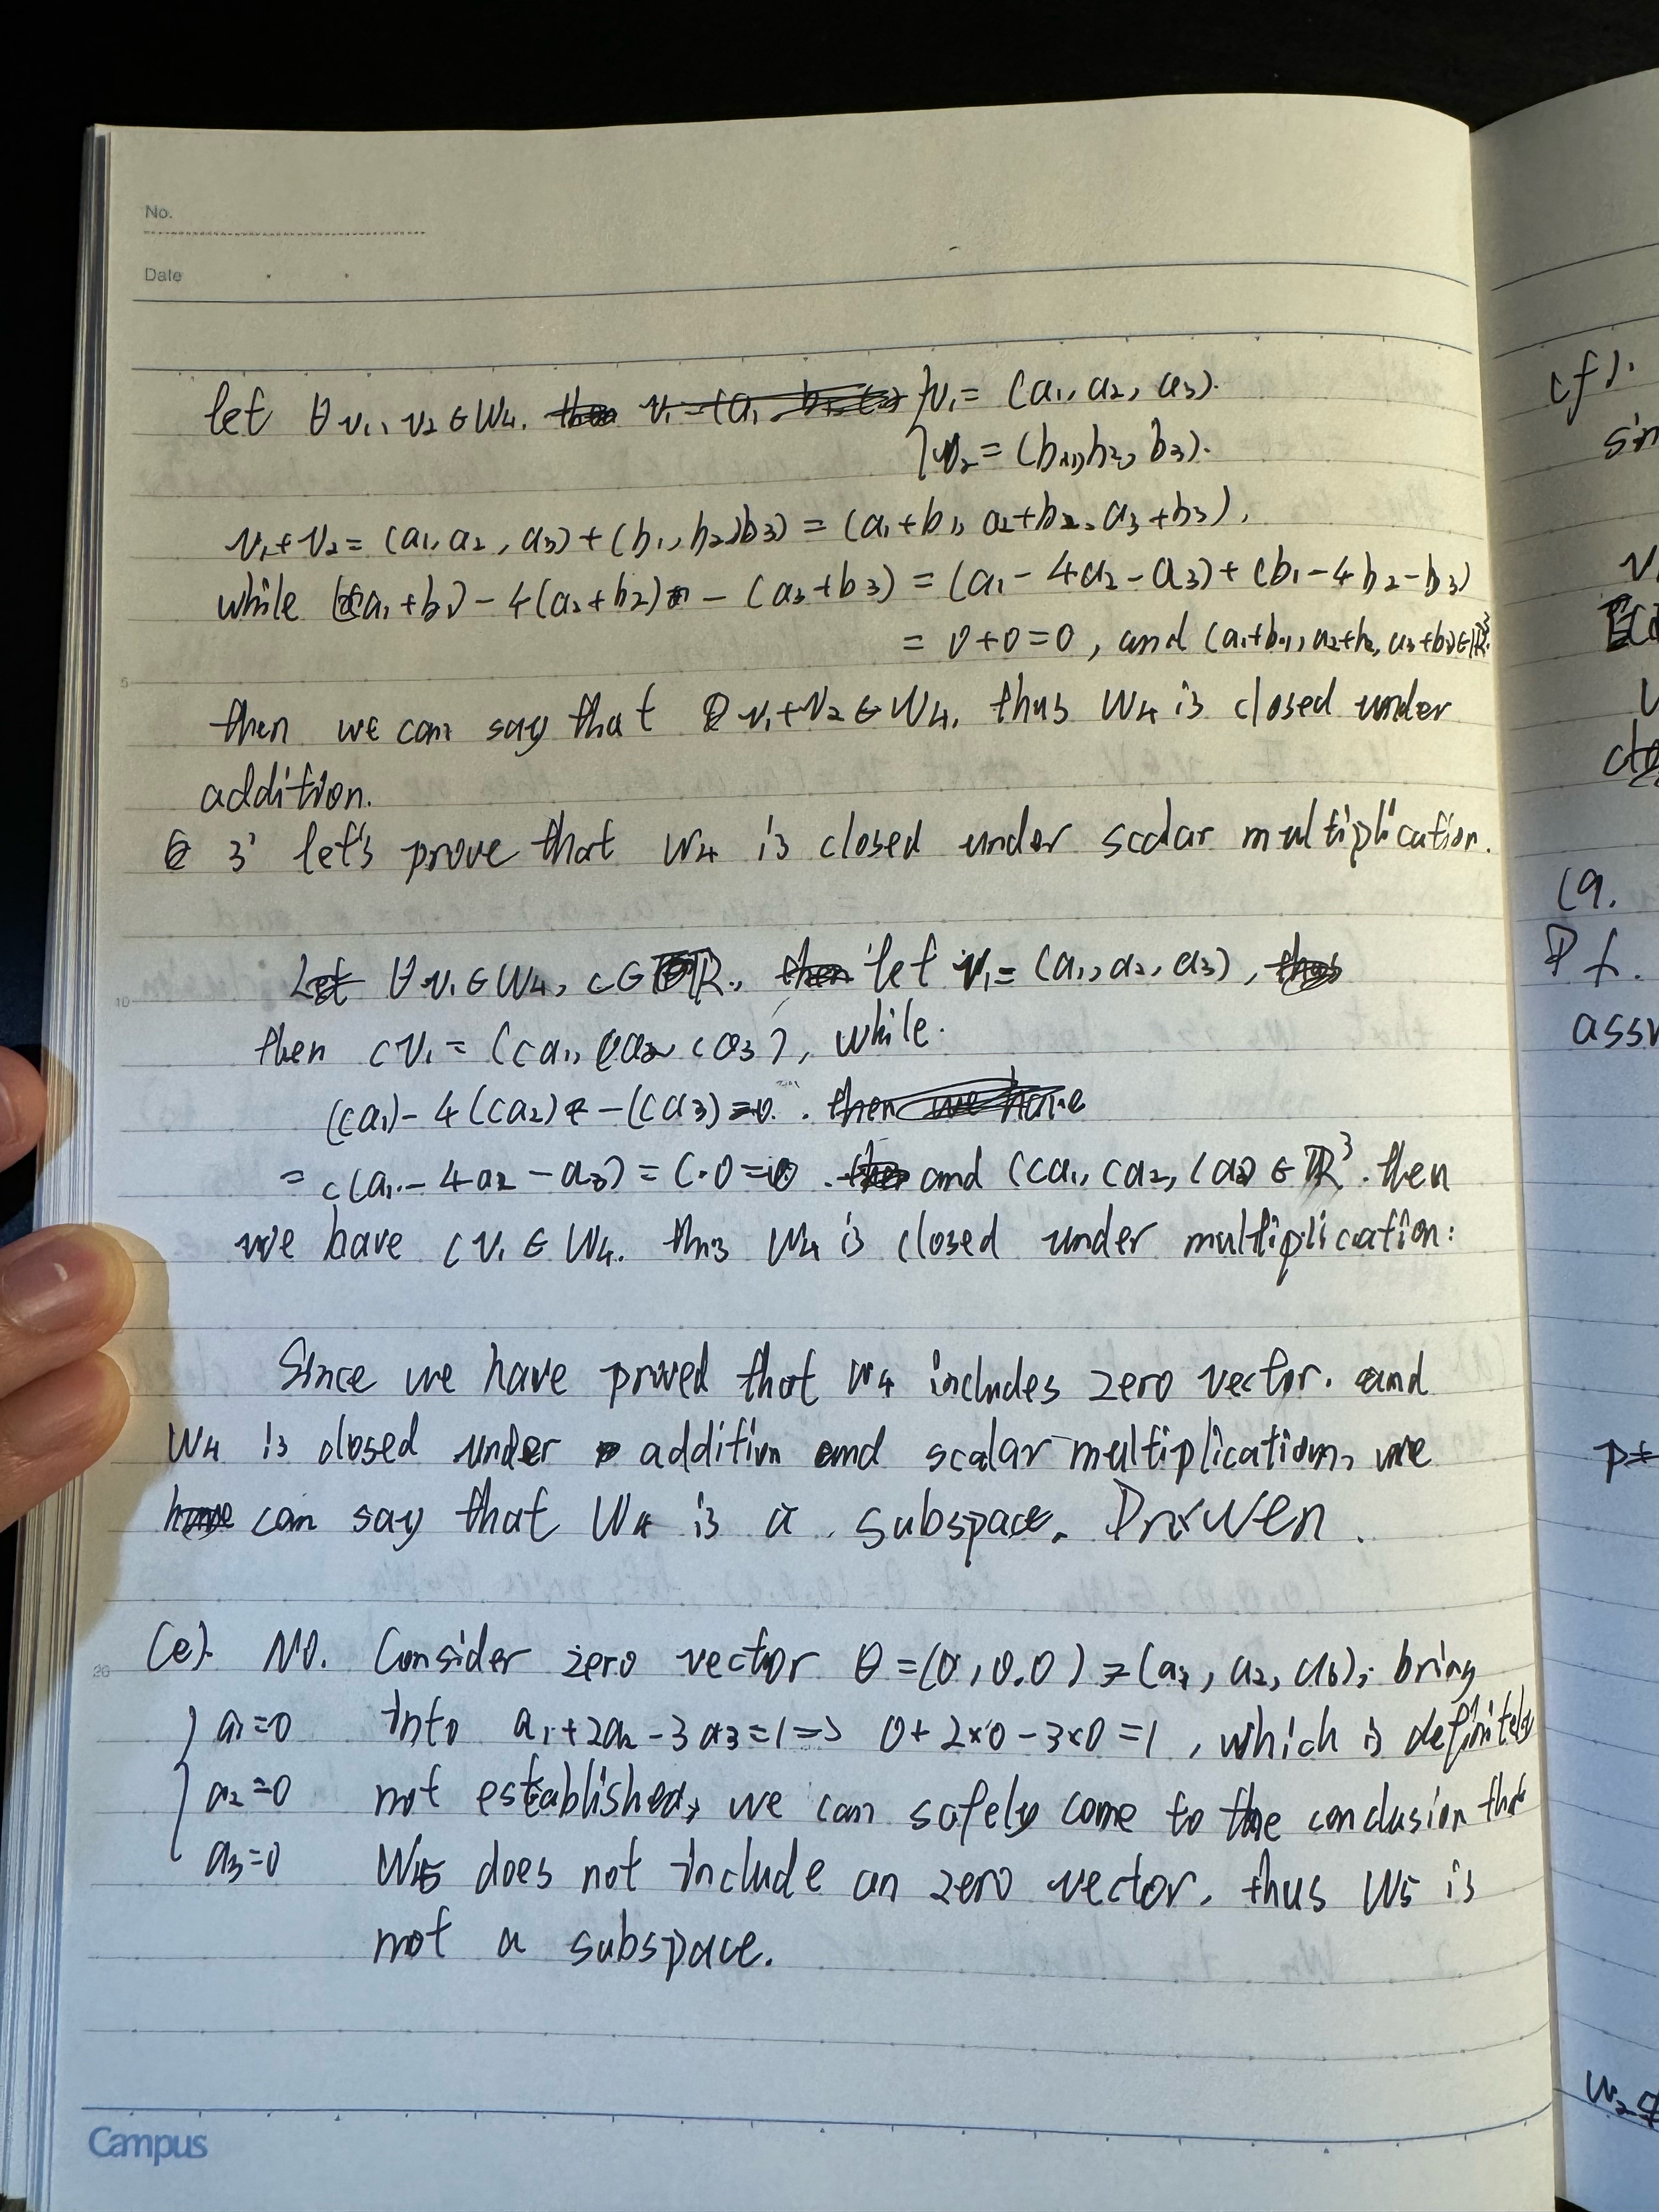 No.
Date
let ∀ v₁, v₂ ∈ W₄. { v₁ = (a₁, a₂, a₃).
v₂ = (b₁, b₂, b₃).
v₁+v₂ = (a₁, a₂, a₃) + (b₁, b₂, b₃) = (a₁+b₁, a₂+b₂, a₃+b₃),
while (a₁+b₁) - 4(a₂+b₂) - (a₃+b₃) = (a₁ - 4a₂ - a₃) + (b₁ - 4b₂ - b₃)
= 0+0=0, and (a₁+b₁, a₂+b₂, a₃+b₃) ∈ ℝ³.
5
then we can say that v₁+v₂ ∈ W₄. thus W₄ is closed under
addition.
3° let's prove that W₄ is closed under scalar multiplication.
∀ v₁ ∈ W₄, c ∈ ℝ., let v₁ = (a₁, a₂, a₃),
10
then cv₁ = (ca₁, ca₂, ca₃), while.
(ca₁) - 4(ca₂) - (ca₃)
= c(a₁ - 4a₂ - a₃) = c·0 = 0. and (ca₁, ca₂, ca₃) ∈ ℝ³. then
we have cv₁ ∈ W₄. thus W₄ is closed under multiplication:
Since we have proved that W₄ includes zero vector. and
W₄ is closed under addition and scalar multiplication, we
can say that W₄ is a subspace. Proven.
(e). NO. Consider zero vector θ = (0, 0, 0) = (a₁, a₂, a₃), bring
20
{ a₁=0 into a₁+2a₂-3a₃=1 => 0+2×0-3×0=1, which is definitely
a₂=0 not established, we can safely come to the conclusion that
a₃=0 W₅ does not include an zero vector. thus W₅ is
not a subspace.
Campus
(f).
(9.
Pf.